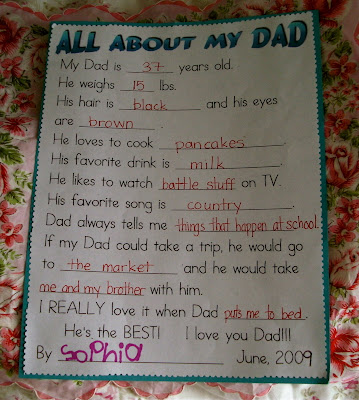 ALL ABOUT MY DAD
My Dad is 37 years old.
He weighs 15 lbs.
His hair is black and his eyes
are brown.
He loves to cook pancakes.
His favorite drink is milk.
He likes to watch battle stuff on TV.
His favorite song is country.
Dad always tells me things that happen at school.
If my Dad could take a trip, he would go
to the market and he would take
me and my brother with him.
I REALLY love it when Dad puts me to bed.
He's the BEST! I love you Dad!!!
By Sophia June, 2009